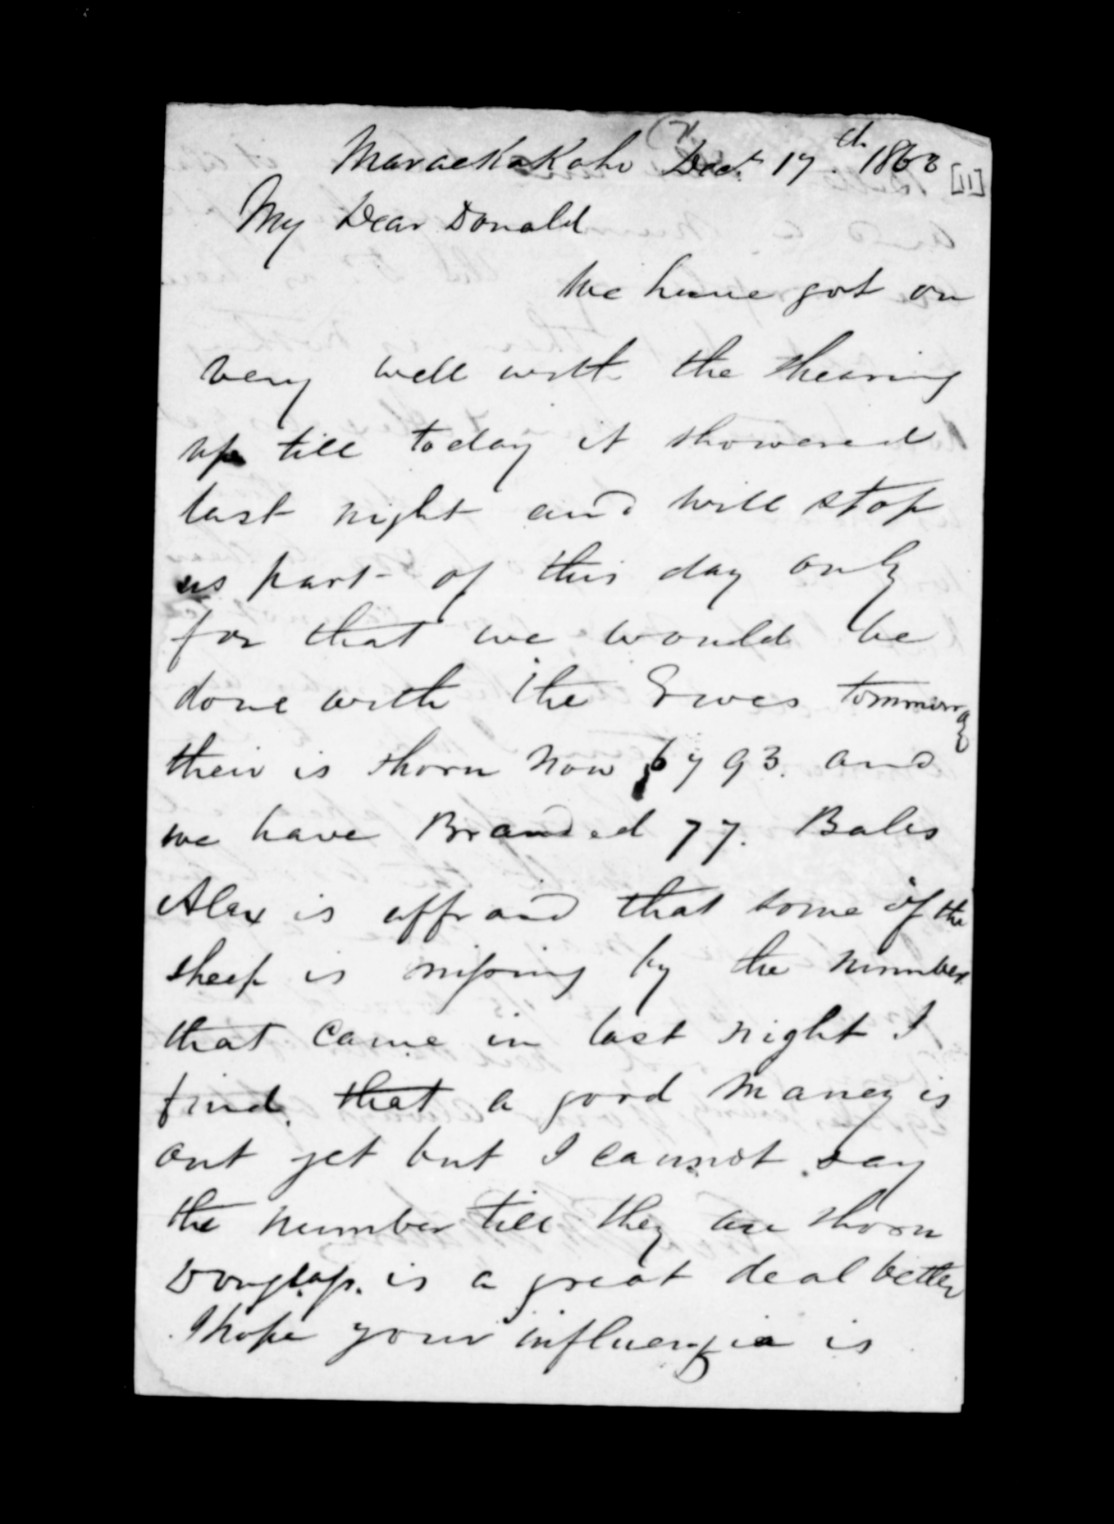 Maraekakaho Dect. 17th. 1863 [11]
My Dear Donald
We have got on
very well with the shearing
up till today it showered
last night and will stop
us part of this day only
for that we would be
done with the Ewes tommorrow
their is shorn now 6793. and
we have Branded 77. Bales
Alex is affraid that some of the
sheep is missing by the number
that came in last night I
find that a good maney is
out yet but I cannot say
the number till they are shorn
Douglass. is a great deal better
I hope your influenzia is